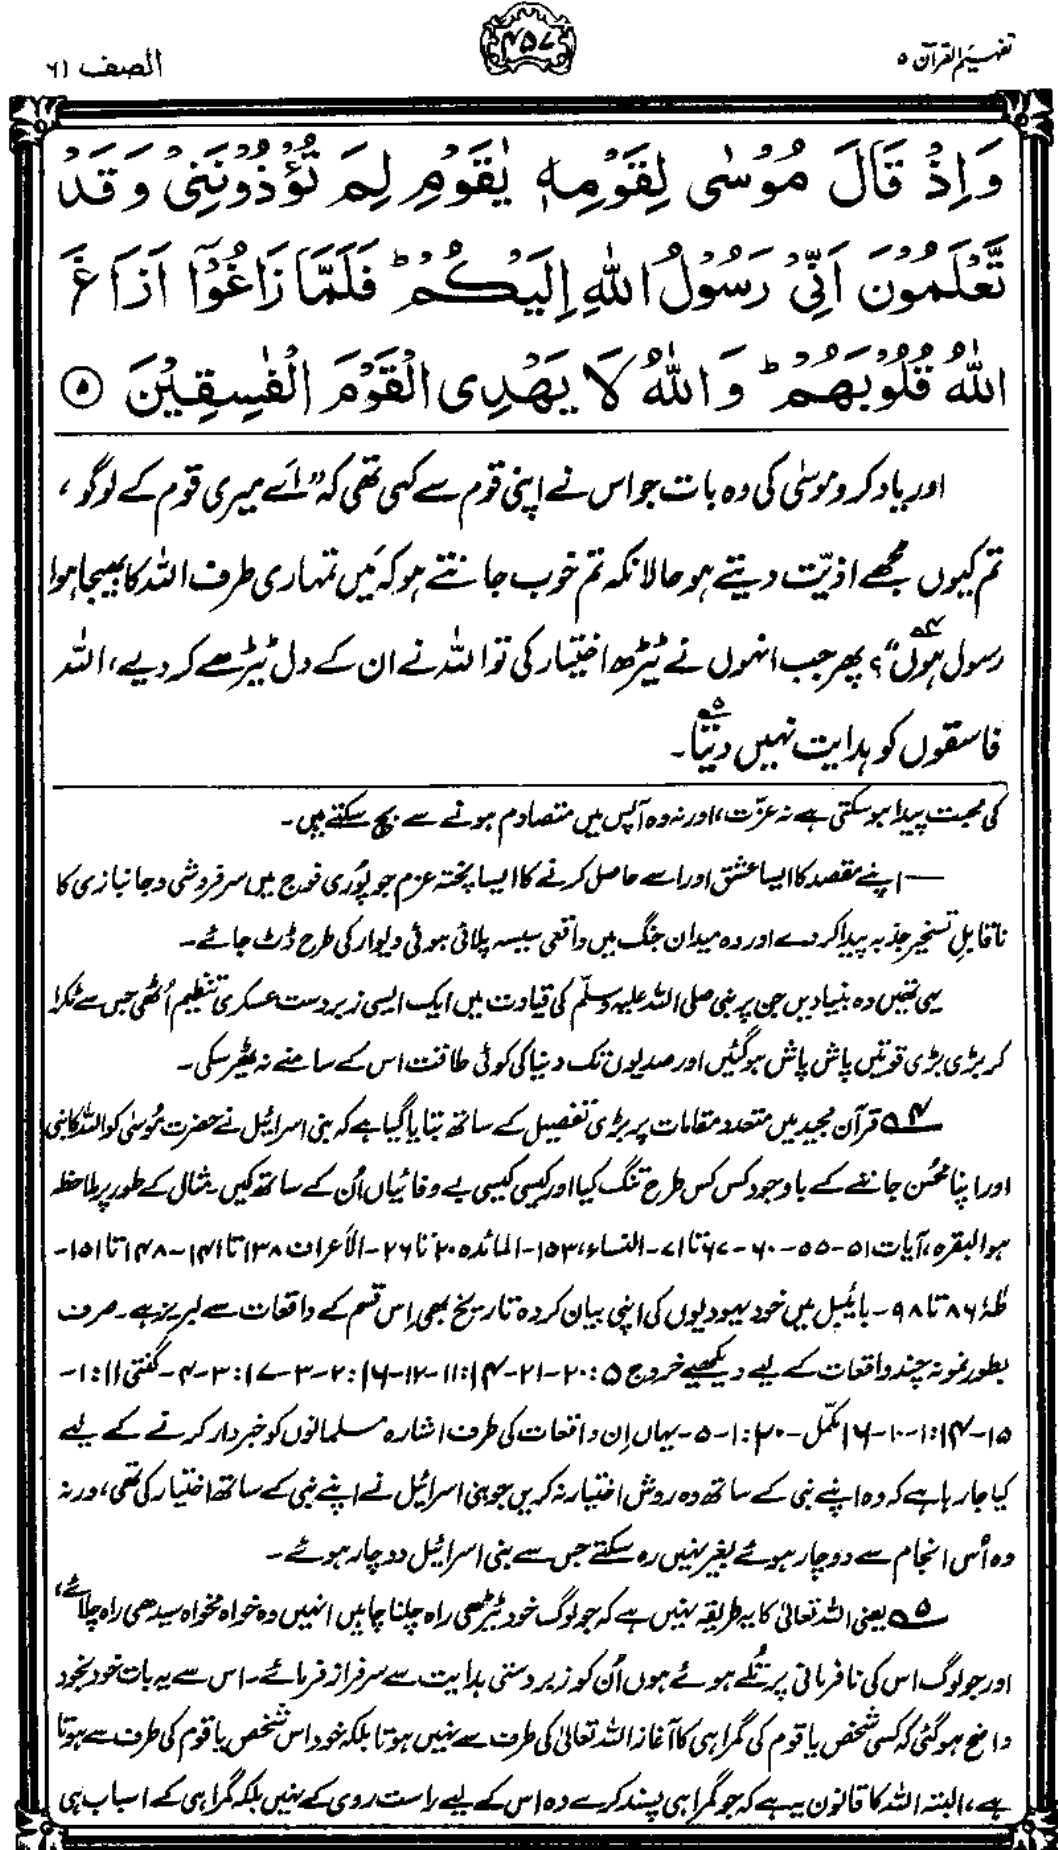 تفہیم القرآن ۵
۴۵۷
الصف ۶۱
وَاِذْ قَالَ مُوْسٰى لِقَوْمِهٖ يٰقَوْمِ لِمَ تُؤْذُوْنَنِيْ وَقَدْ
تَّعْلَمُوْنَ اَنِّيْ رَسُوْلُ اللّٰهِ اِلَيْكُمْ ؕ فَلَمَّا زَاغُوْٓا اَزَاغَ
اللّٰهُ قُلُوْبَهُمْ ؕ وَاللّٰهُ لَا يَهْدِى الْقَوْمَ الْفٰسِقِيْنَ ۵
اور یاد کرو موسیٰ کی وہ بات جو اس نے اپنی قوم سے کہی تھی کہ ”اَے میری قوم کے لوگو،
تم کیوں مجھے اذیّت دیتے ہو حالانکہ تم خوب جانتے ہو کہ مَیں تمہاری طرف اللہ کا بھیجا ہوا
رسول ہُوں“؟ ۴ پھر جب انہوں نے ٹیڑھ اختیار کی تو اللہ نے ان کے دل ٹیڑھے کر دیے، اللہ
فاسقوں کو ہدایت نہیں دیتا۔ ۵
کی محبت پیدا ہو سکتی ہے نہ عزّت، اور نہ وہ آپس میں متصادم ہونے سے بچ سکتے ہیں۔
—اپنے مقصد کا ایسا عشق اور اسے حاصل کرنے کا ایسا پختہ عزم جو پُوری فوج میں سرفروشی و جانبازی کا
ناقابلِ تسخیر جذبہ پیدا کر دے اور وہ میدان جنگ میں واقعی سیسہ پلائی ہوئی دیوار کی طرح ڈٹ جائے۔
یہی تھیں وہ بنیادیں جن پر نبی صلی اللہ علیہ وسلّم کی قیادت میں ایک ایسی زبردست عسکری تنظیم اُٹھی جس سے ٹکرا
کر بڑی بڑی قوتیں پاش پاش ہو گئیں اور صدیوں تک دنیا کی کوئی طاقت اس کے سامنے نہ ٹھیر سکی۔
۴ قرآن مجید میں متعدد مقامات پر بڑی تفصیل کے ساتھ بتایا گیا ہے کہ بنی اسرائیل نے حضرت مُوسیٰ کو اللہ کا نبی
اور اپنا محسُن جاننے کے باوجود کس کس طرح تنگ کیا اور کیسی کیسی بے وفائیاں اُن کے ساتھ کیں۔ مثال کے طور پر ملاحظہ
ہو البقرہ، آیات ۵۱-۵۵-۶۰-۶۷ تا ۷۱- النساء، ۱۵۳- المائدہ ۲۰ تا ۲۶- الأعراف ۱۳۸ تا ۱۴۱-۱۴۸ تا ۱۵۱-
طٰہٰ ۸۶ تا ۹۸۔ بائیبل میں خود یہودیوں کی اپنی بیان کردہ تاریخ بھی اِس قسم کے واقعات سے لبریز ہے۔ صرف
بطور نمونہ چند واقعات کے لیے دیکھیے خروج ۵:۲۰-۲۱-۱۴:۱۱-۱۲-۱۶:۲-۳-۱۷:۳-۴- گفتی ۱۱:۱-
۱۵-۱۴:۱-۱۰-۱۶ مکمّل-۲۰:۱-۵- یہاں اِن واقعات کی طرف اشارہ مسلمانوں کو خبردار کرنے کے لیے
کیا جا رہا ہے کہ وہ اپنے نبی کے ساتھ وہ روش اختیار نہ کریں جو بنی اسرائیل نے اپنے نبی کے ساتھ اختیار کی تھی، ورنہ
وہ اُس انجام سے دوچار ہوئے بغیر نہیں رہ سکتے جس سے بنی اسرائیل دوچار ہوئے۔
۵ یعنی اللہ تعالیٰ کا یہ طریقہ نہیں ہے کہ جو لوگ خود ٹیڑھی راہ چلنا چاہیں انہیں وہ خواہ مخواہ سیدھی راہ چلائے،
اور جو لوگ اس کی نافرمانی پر تُلے ہوئے ہوں اُن کو زبردستی ہدایت سے سرفراز فرمائے۔ اس سے یہ بات خود بخود
واضح ہو گئی کہ کسی شخص یا قوم کی گمراہی کا آغاز اللہ تعالیٰ کی طرف سے نہیں ہوتا بلکہ خود اس شخص یا قوم کی طرف سے ہوتا
ہے، البتہ اللہ کا قانون یہ ہے کہ جو گمراہی پسند کرے وہ اس کے لیے راست روی کے نہیں بلکہ گمراہی کے اسباب ہی